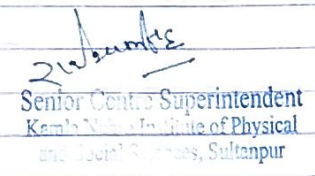 Senior Centre Superintendent
Kamla Nehru Institute of Physical
and Social Sciences, Sultanpur